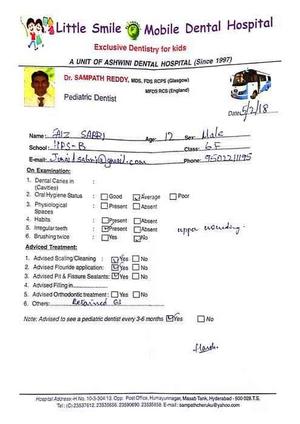 Little Smile Mobile Dental Hospital
Exclusive Dentistry for kids
A UNIT OF ASHWINI DENTAL HOSPITAL (Since 1997)
Dr. SAMPATH REDDY, MDS, FDS RCPS (Glasgow)
MFDS RCS (England)
Pediatric Dentist
Date: 5/2/18
Name: FAIZ SABRI Age: 12 Sex: Male
School: HPS-B Class: 6F
E-mail: @gmail.com Phone: 9502211195
On Examination:
1. Dental Caries in :
(Cavities)
2. Oral Hygiene Status : Good Average Poor
3. Physiological : Present Absent
Spaces
4. Habits : Present Absent
5. Irregular teeth : Present Absent upper crowding
6. Brushing twice : Yes No
Adviced Treatment:
1. Advised Scaling/Cleaning : Yes No
2. Advised Flouride application: Yes No
3. Advised Pit & Fissure Sealants: Yes No
4. Advised Filling in
5. Advised Orthodontic treatment: Yes No
6. Others: Retained
Note: Advised to see a pediatric dentist every 3-6 months Yes No
Hospital Address: H No. 10-3-304/13, Opp. Post Office, Humayunnagar, Masab Tank, Hyderabad - 500 028.T.S.
Tel: (C) 23537612, 23530656, 23590690, 23535858. E-mail: sampathcheruku@yahoo.com